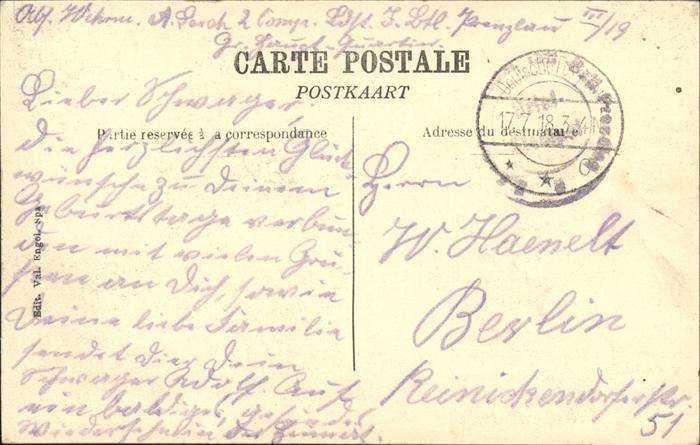 2 Comp. Ldst. I. Btl. Prenzlau III/19
Gr. Haupt-Quartier
CARTE POSTALE
POSTKAART
Partie reservée à la correspondance
Adresse du destinataire
17.7.18.3-4
Edit. Val. Engel, Spa
Lieber Schwager!
Die herzlichsten Glück-
wünsche zu Deinem
Geburtstage verbun-
den mit vielen Grü-
ßen an Dich, sowie
Deine liebe Familie
sendet Dir Dein
Schwager Adolf. Auf
ein baldiges, gesundes
Wiedersehn in der Heimat.
Herrn
W. Haenelt
Berlin
Reinickendorferstr.
51